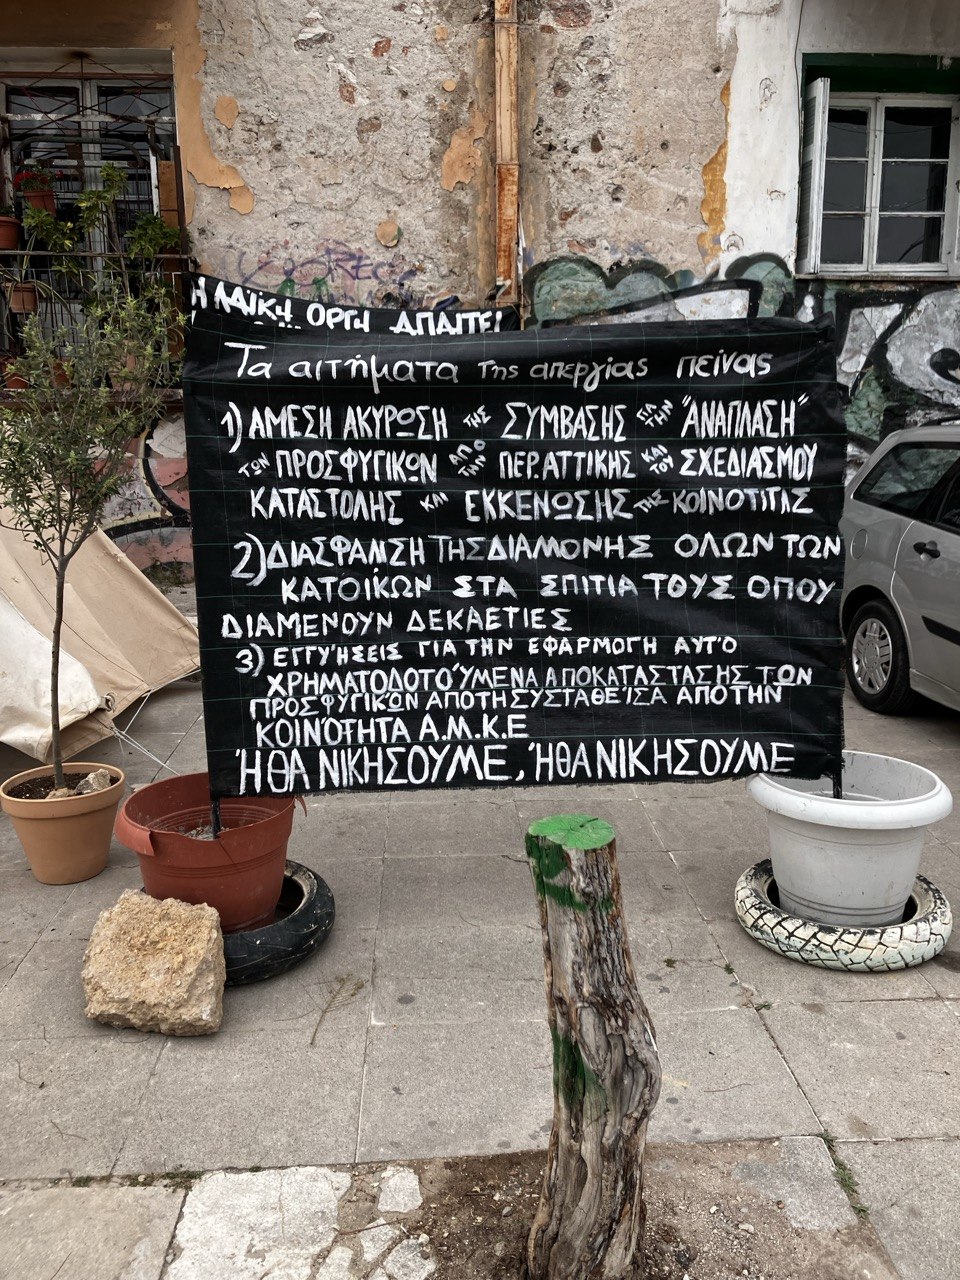 Η ΛΑΪΚΗ ΟΡΓΗ ΑΠΑΙΤΕΙ
Τα αιτήματα της απεργίας πείνας
1) ΑΜΕΣΗ ΑΚΥΡΩΣΗ ΤΗΣ ΣΥΜΒΑΣΗΣ ΓΙΑ ΤΗΝ "ΑΝΑΠΛΑΣΗ"
ΤΩΝ ΠΡΟΣΦΥΓΙΚΩΝ ΑΠΟ ΤΗΝ ΠΕΡ.ΑΤΤΙΚΗΣ ΚΑΙ ΤΟΥ ΣΧΕΔΙΑΣΜΟΥ
ΚΑΤΑΣΤΟΛΗΣ ΚΑΙ ΕΚΚΕΝΩΣΗΣ ΤΗΣ ΚΟΙΝΟΤΙΤΙΣ
2) ΔΙΑΣΦΑΛΙΣΗ ΤΗΣ ΔΙΑΜΟΝΗΣ ΟΛΩΝ ΤΩΝ
ΚΑΤΟΙΚΩΝ ΣΤΑ ΣΠΙΤΙΑ ΤΟΥΣ ΟΠΟΥ
ΔΙΑΜΕΝΟΥΝ ΔΕΚΑΕΤΙΕΣ
3) ΕΓΓΥΉΣΕΙΣ ΓΙΑ ΤΗΝ ΕΦΑΡΜΟΓΗ ΑΥΤΟ
ΧΡΗΜΑΤΟΔΟΤΟΎΜΕΝΑ ΑΠΟΚΑΤΑΣΤΑΣΗΣ ΤΩΝ
ΠΡΟΣΦΥΓΙΚΩΝ ΑΠΟ ΤΗ ΣΥΣΤΑΘΕΊΣΑ ΑΠΟ ΤΗΝ
ΚΟΙΝΌΤΗΤΑ Α.Μ.Κ.Ε
Ή ΘΑ ΝΙΚΗΣΟΥΜΕ, Ή ΘΑ ΝΙΚΗΣΟΥΜΕ